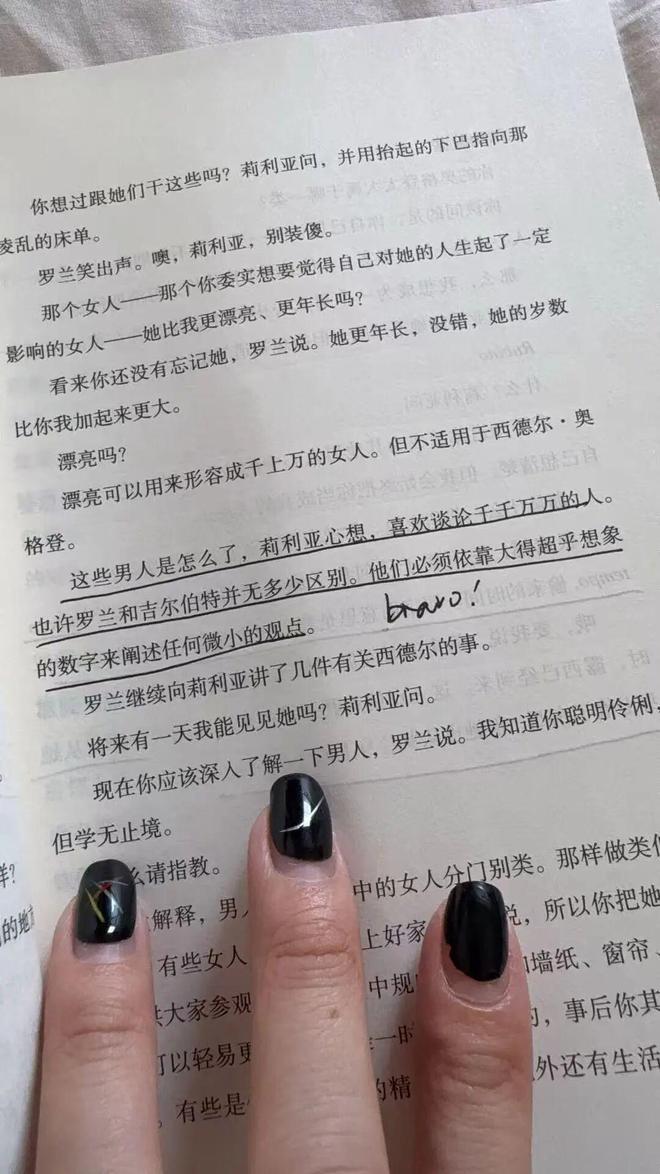 你想过跟她们干这些吗？莉利亚问，并用抬起的下巴指向那
凌乱的床单。
罗兰笑出声。噢，莉利亚，别装傻。
那个女人——那个你委实想要觉得自己对她的人生起了一定
影响的女人——她比我更漂亮、更年长吗？
看来你还没有忘记她，罗兰说。她更年长，没错，她的岁数
比你我加起来更大。
漂亮吗？
漂亮可以用来形容成千上万的女人。但不适用于西德尔·奥
格登。
这些男人是怎么了，莉利亚心想，喜欢谈论千千万万的人。
也许罗兰和吉尔伯特并无多少区别。他们必须依靠大得超乎想象
的数字来阐述任何微小的观点。
bravo！
罗兰继续向莉利亚讲了几件有关西德尔的事。
将来有一天我能见见她吗？莉利亚问。
现在你应该深入了解一下男人，罗兰说。我知道你聪明伶俐，
但学无止境。
么请指教。
解释，男 中的女人分门别类。那样做类
有些女人 上好家 说，所以你把她
大家参观 中规 墙纸、窗帘、
可以轻易更 一时 ，事后你其
有些是 的精 外还有生活